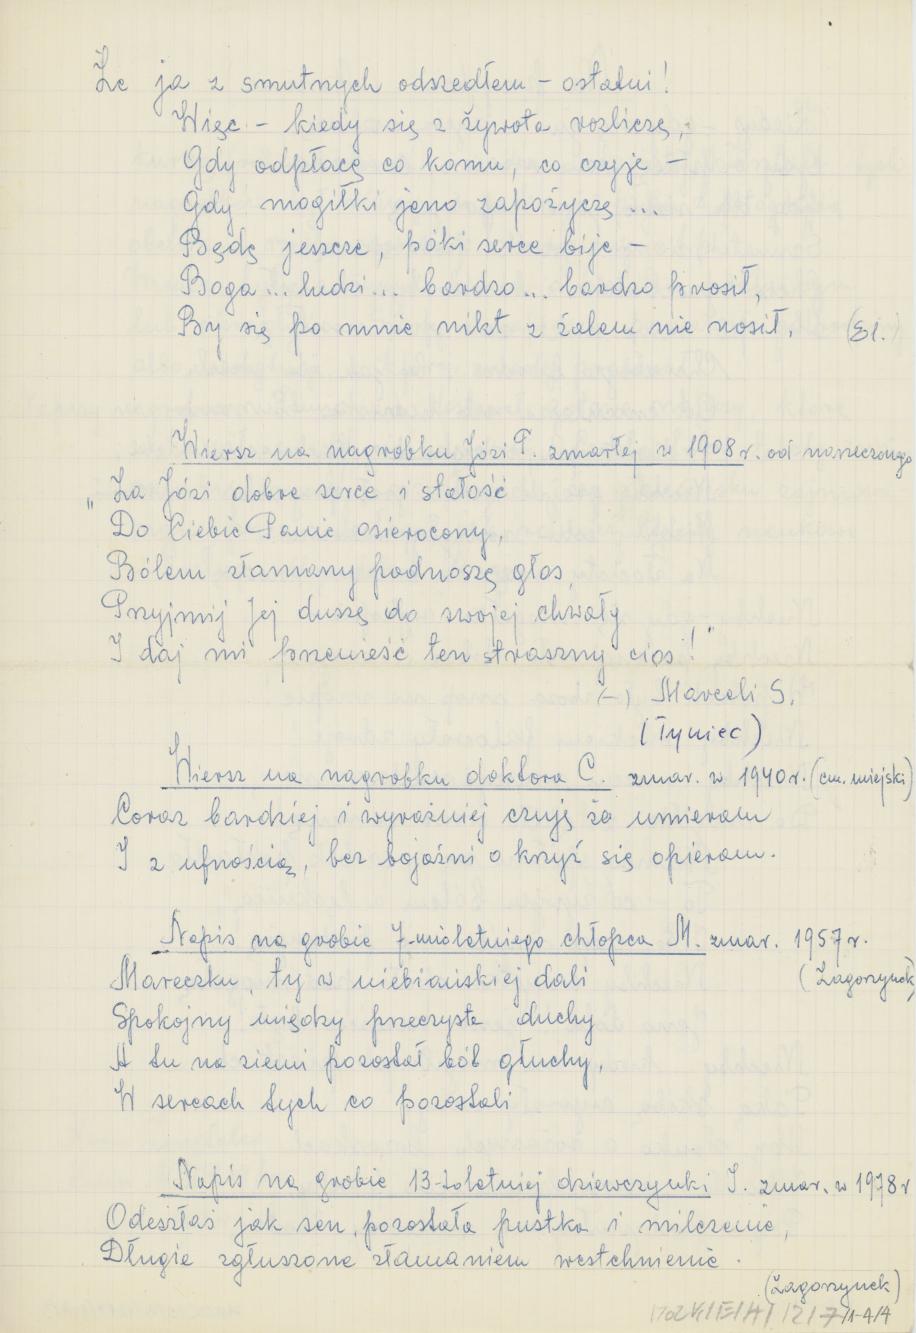 Że ja z smutnych odszedłem – ostatni!
Więc – kiedy się z żywota rozliczę,
Gdy odpłacę co komu, co czyje –
Gdy mogiłki jeno zapożyczę ...
Będę jeszcze, póki serce bije –
Boga ... ludzi ... bardzo ... bardzo prosił,
By się po mnie nikt z żalem nie nosił. (El.)
Wiersz na nagrobku Józi P. zmarłej w 1908 r. od narzeczonego
„Za Józi dobre serce i stałość
Do Ciebie Panie osierocony,
Bólem złamany podnoszę głos,
Przyjmij Jej duszę do swojej chwały
I daj mi przenieść ten straszny cios!"
(–) Marceli S.
(Tyniec)
Wiersz na nagrobku doktora C. zmar. w 1940 r. (cm. miejski)
Coraz bardziej i wyraźniej czuję że umieram
I z ufnością, bez bojaźni o krzyż się opieram.
Napis na grobie 7-mioletniego chłopca M. zmar. 1957 r.
(Zagorzynek)
Mareczku, ty w niebiańskiej dali
Spokojny między przeczyste duchy
A tu na ziemi pozostał ból głuchy,
W sercach tych co pozostali
Napis na grobie 13-toletniej dziewczynki I. zmar. w 1978 r
Odeszłaś jak sen, pozostała pustka i milczenie,
Długie zgłuszone złamaniem westchnienie.
(Zagorzynek)